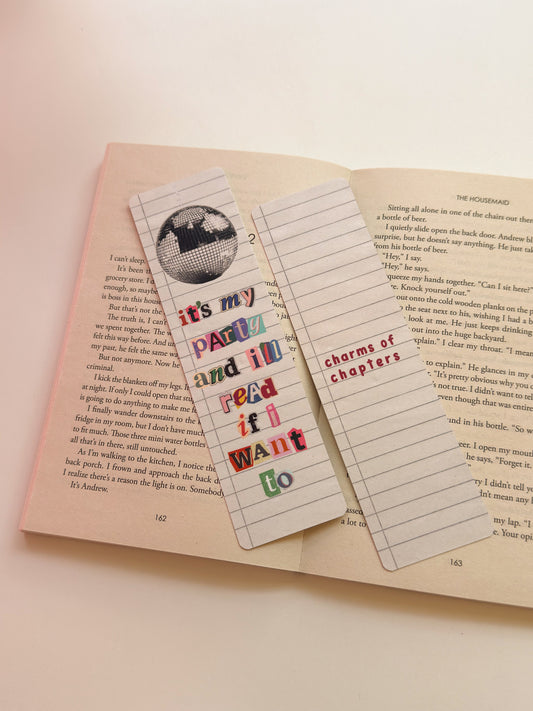 it's my
party
and ill
read
if i
want
to
charms of
chapters
2
I can't sleep.
It's been
grocery store. I
enough, so maybe
is boss in this hous
But that's not
The truth is, I can't
we spent together. The
felt this way before. And
my past, he felt the same wa
But not anymore. Now he
criminal.
I kick the blankets off my legs.
at night. If only I could open that
is going to do anything to make me
I finally wander downstairs to the
fridge in my room, but I don't have much
to fit much. Those three mini water bottles
all that's in there, still untouched.
As I'm walking to the kitchen, I notice the
back porch. I frown and approach the back d
I realize there's a reason the light is on. Somebody
It's Andrew.
162
THE HOUSEMAID
Sitting all alone in one of the chairs out ther
a bottle of beer.
I quietly slide open the back door. Andrew bl
surprise, but he doesn't say anything. He just tak
from his bottle of beer.
"Hey," I say.
"Hey," he says.
queeze my hands together. "Can I sit here?"
re. Knock yourself out."
out onto the cold wooden planks on the p
the seat next to his, wishing I had a b
look at me. He just keeps drinking
out into the huge backyard.
explain." I clear my throat. "I mean
explain." He glances in my
"It's pretty obvious why you
not true. I didn't want to tell
even though that was entire
and in his bottle.
"So w
, I open my mouth
he says, "Forget it.
dn't mean any
ry I didn't tell you
my lap. "I
e. Your opi
assed
a lot to
163